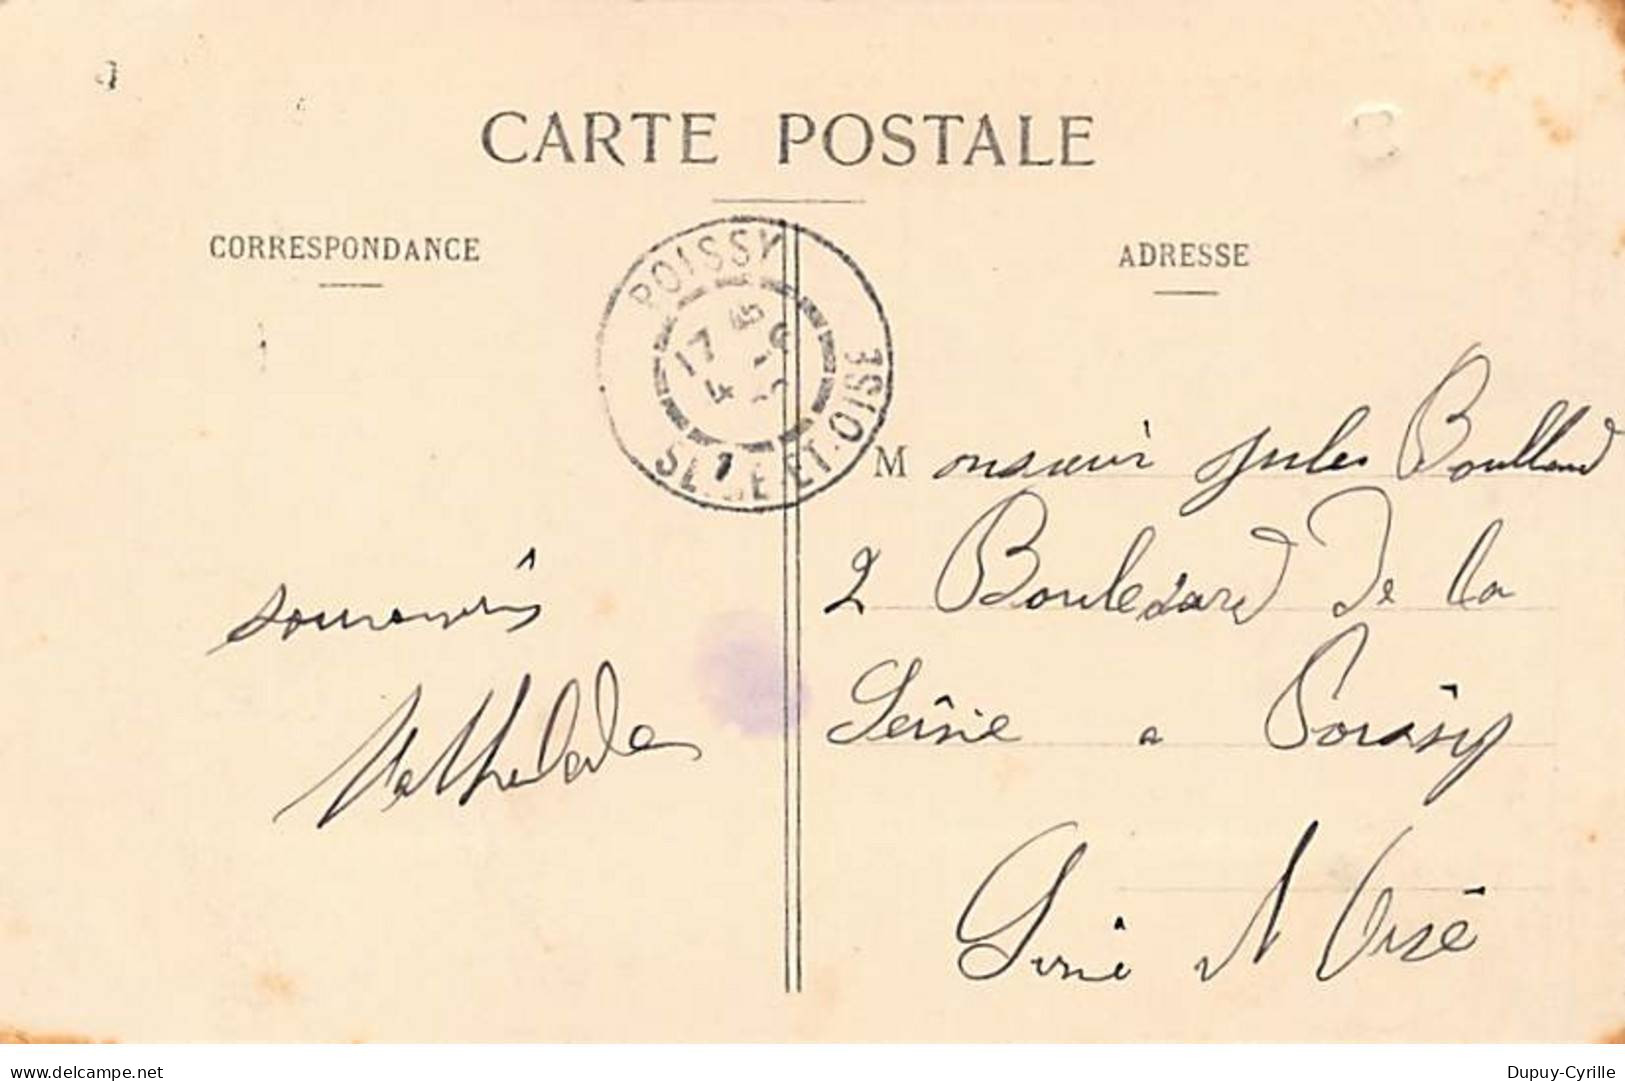 CARTE POSTALE
CORRESPONDANCE
ADRESSE
POISSY
17
4
SEINE-ET-OISE
Monsieur Jules Boulland
2 Boulevard de la
Seisie a Poissy
Seine et Oise
souvenirs
delcampe.net
Dupuy-Cyrille